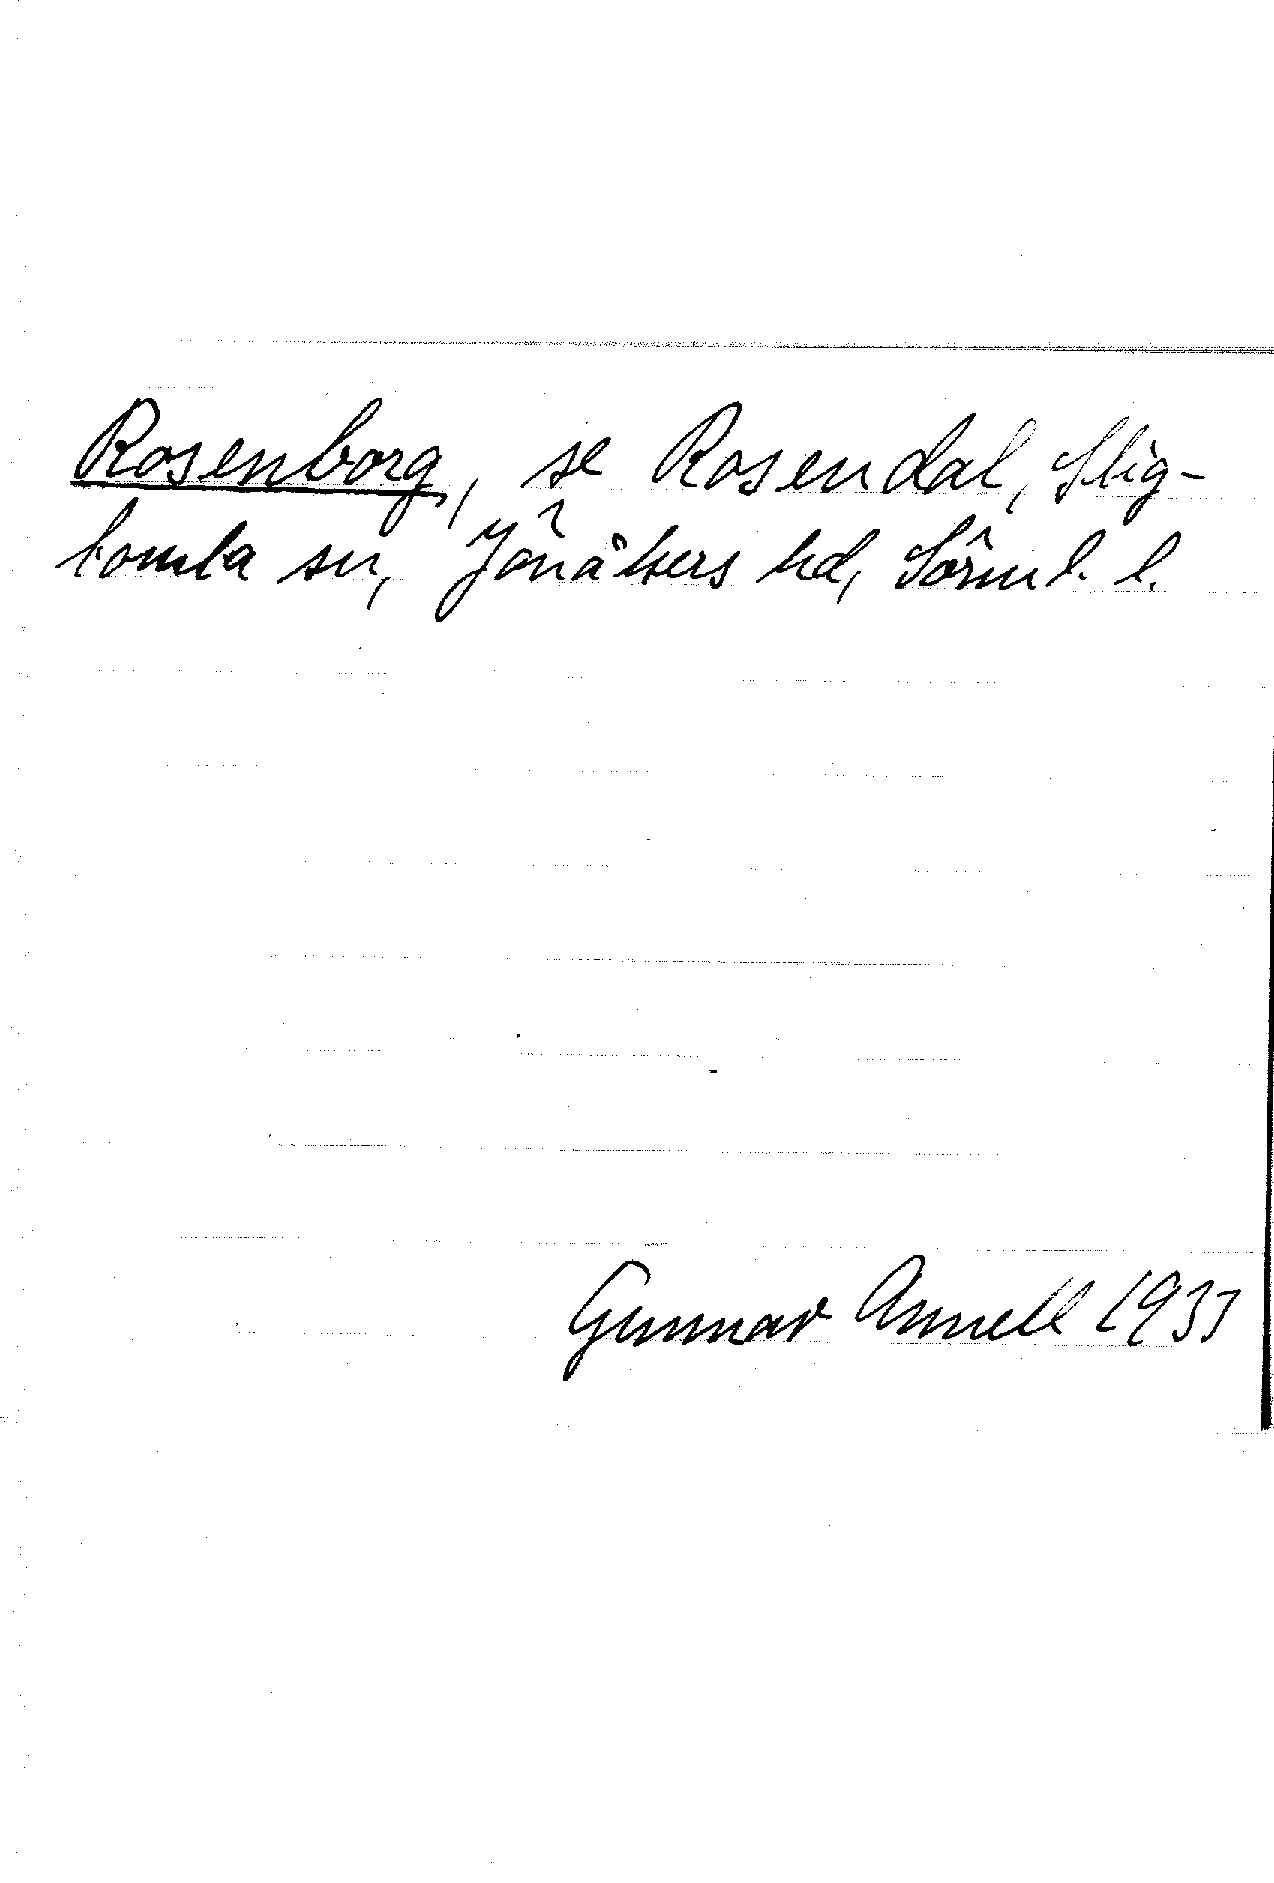 Rosenborg, se Rosendal, Stig-
tomta sn, Jönåkers hd, Sörml. l.
Gunnar Annell 1933